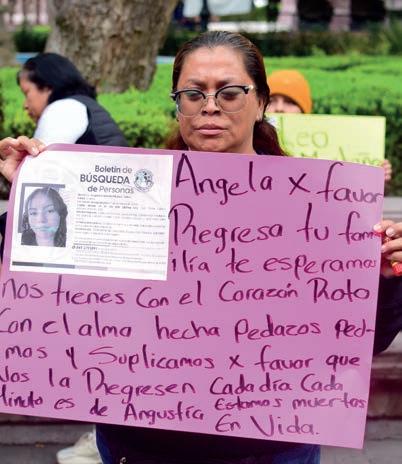 Boletín de
BÚSQUEDA
de Personas
Angela x favor
Regresa tu fam-
ilia te esperamos
nos tienes con el Corazón Roto
Con el alma hecha pedazos Ped-
imos y Suplicamos x favor que
Nos la Regresen Cada día Cada
Minuto es de Angustia Estamos muertas
En Vida.
Leo